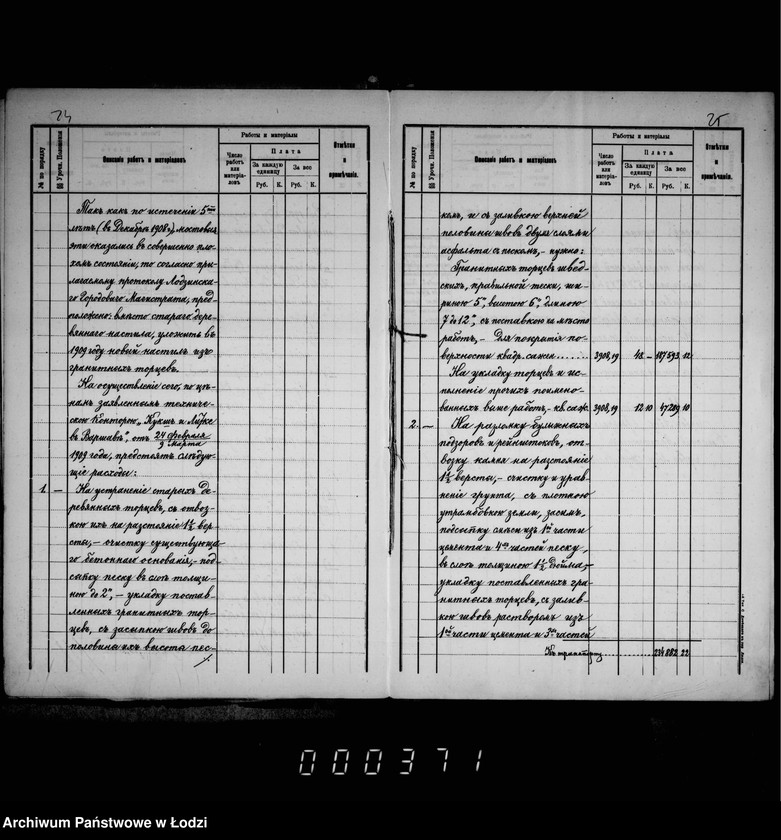 24
№ по порядку
§§ Урочн. Положения
Описаніе работъ и матеріаловъ
Работы и матеріалы
Число работъ или матеріаловъ
Плата
За каждую единицу
За все
Руб. К. Руб. К.
Отмѣтки и примѣчанія.
Такъ какъ по истеченіи 5ти
лѣтъ (въ Декабрѣ 1908 г.) мостовыя
эти оказались въ совершенно пло-
хомъ состояніи, то согласно при-
лагаемому протоколу Лодзинска-
го Городового Магистрата, пред-
положено: вмѣсто стараго дере-
вяннаго настила, уложить въ
1909 году новый настилъ изъ
гранитныхъ торцевъ.
На осуществленіе сего, по цѣ-
намъ заявленнымъ техниче-
скою Конторою „Кукшъ и Лидке
въ Варшавѣ", отъ 24 февраля / 9 Марта
1909 года, предстоятъ слѣдую-
щіе расходы:
1. — На устраненіе старыхъ де-
ревянныхъ торцевъ, съ отвоз-
кою ихъ на разстояніе 1½ вер-
сты, – очистку существующа-
го бетоннаго основанія, – под-
сыпку песку въ слоѣ толщи-
ною до 2", – укладку постав-
ленныхъ гранитныхъ тор-
цевъ, съ засыпкою швовъ до
половины ихъ высоты пес-
25
№ по порядку
§§ Урочн. Положения
Описаніе работъ и матеріаловъ
Работы и матеріалы
Число работъ или матеріаловъ
Плата
За каждую единицу
За все
Руб. К. Руб. К.
Отмѣтки и примѣчанія.
комъ, и съ заливкою верхней
половины швовъ двумя слоями
асфальта съ пескомъ, – нужно:
Гранитныхъ торцевъ швед-
скихъ, правильной тески, ши-
риною 5", высотою 6", длиною
7 до 12", съ поставкою на мѣсто
работъ, – Для покрытія по-
верхности квадр. сажен ...... 3908,19 48. – 187593 12
На укладку торцевъ и ис-
полненіе прочихъ поимено-
ванныхъ выше работъ, – кв. саж. 3908,19 12 10 47289 10
2. — На разломку булыжныхъ
подзоровъ и рейнштоковъ, от-
возку камня на разстояніе
1½ версты, – счистку и урав-
неніе грунта, съ плотною
утрамбовкою земли, засимъ,
подсыпку смѣси изъ 1ой части
цемента и 4хъ частей песку,
въ слоѣ толщиною 1½ дюйма, –
укладку поставленныхъ гра-
нитныхъ торцевъ, съ залив-
кою швовъ растворомъ изъ
1ой части цемента и 3хъ частей
Къ транспорту ........ 234882 22
000371
Archiwum Państwowe w Łodzi